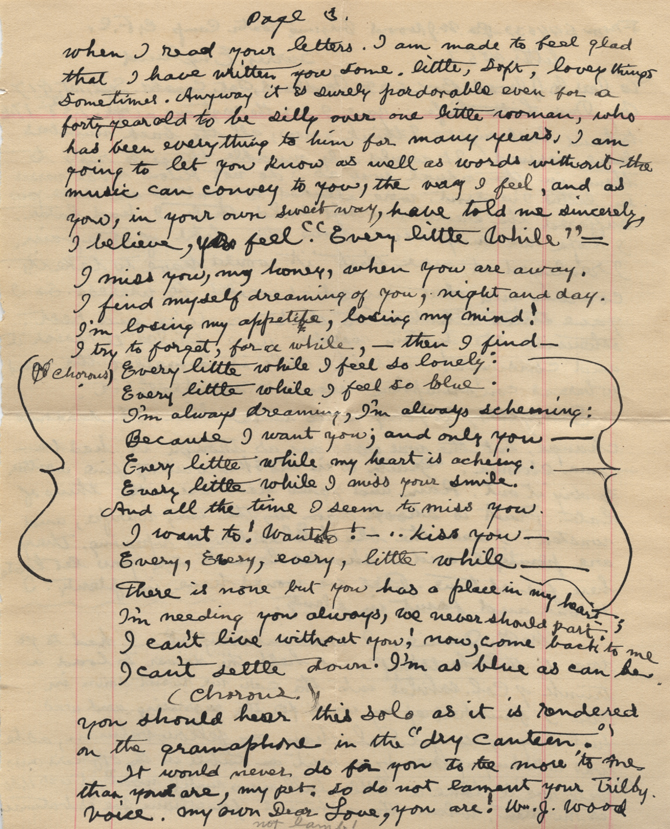 Page 3.
when I read your letters. I am made to feel glad
that I have written you some little, soft, lovey things
sometimes. Anyway it is surely pardonable even for a
forty year old to be silly over one little woman, who
has been everything to him for many years, I am
going to let you know as well as words without the
music can convey to you, the way I feel, and as
you, in your own sweet way, have told me sincerely,
I believe, you feel. "Every little While" —
I miss you, my honey, when you are away.
I find myself dreaming of you, night and day.
I'm losing my appetite, losing my mind!
I try to forget, for a while, — then I find —
(Chorous) Every little while I feel so lonely:
Every little while I feel so blue.
I'm always dreaming, I'm always scheming:
Because I want you; and only you —
Every little while my heart is acheing.
Every little while I miss your smile.
And all the time I seem to miss you.
I want to! Want to! - .. kiss you —
Every, Every, every, little while —
There is none but you has a place in my heart;
I'm needing you always, we never should part:
I can't live without you! now, come back to me
I can't settle down. I'm as blue as can be.
(Chorous)
you should hear this solo as it is rendered
on the gramaphone in the "dry canteen."
It would never do for you to be more to me
than you are, my pet. So do not lament your Trilby
voice. my own Dear Love, you are! Wm. J. Wood
not lamb!